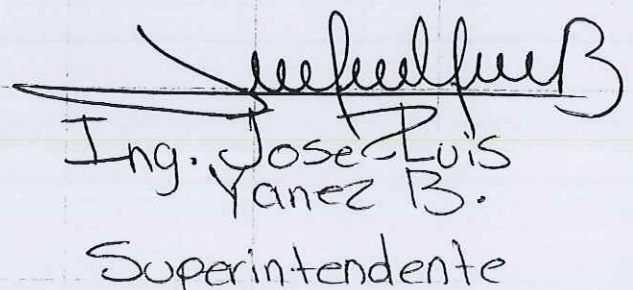 Ing. Jose Luis
Yanez B.
Superintendente